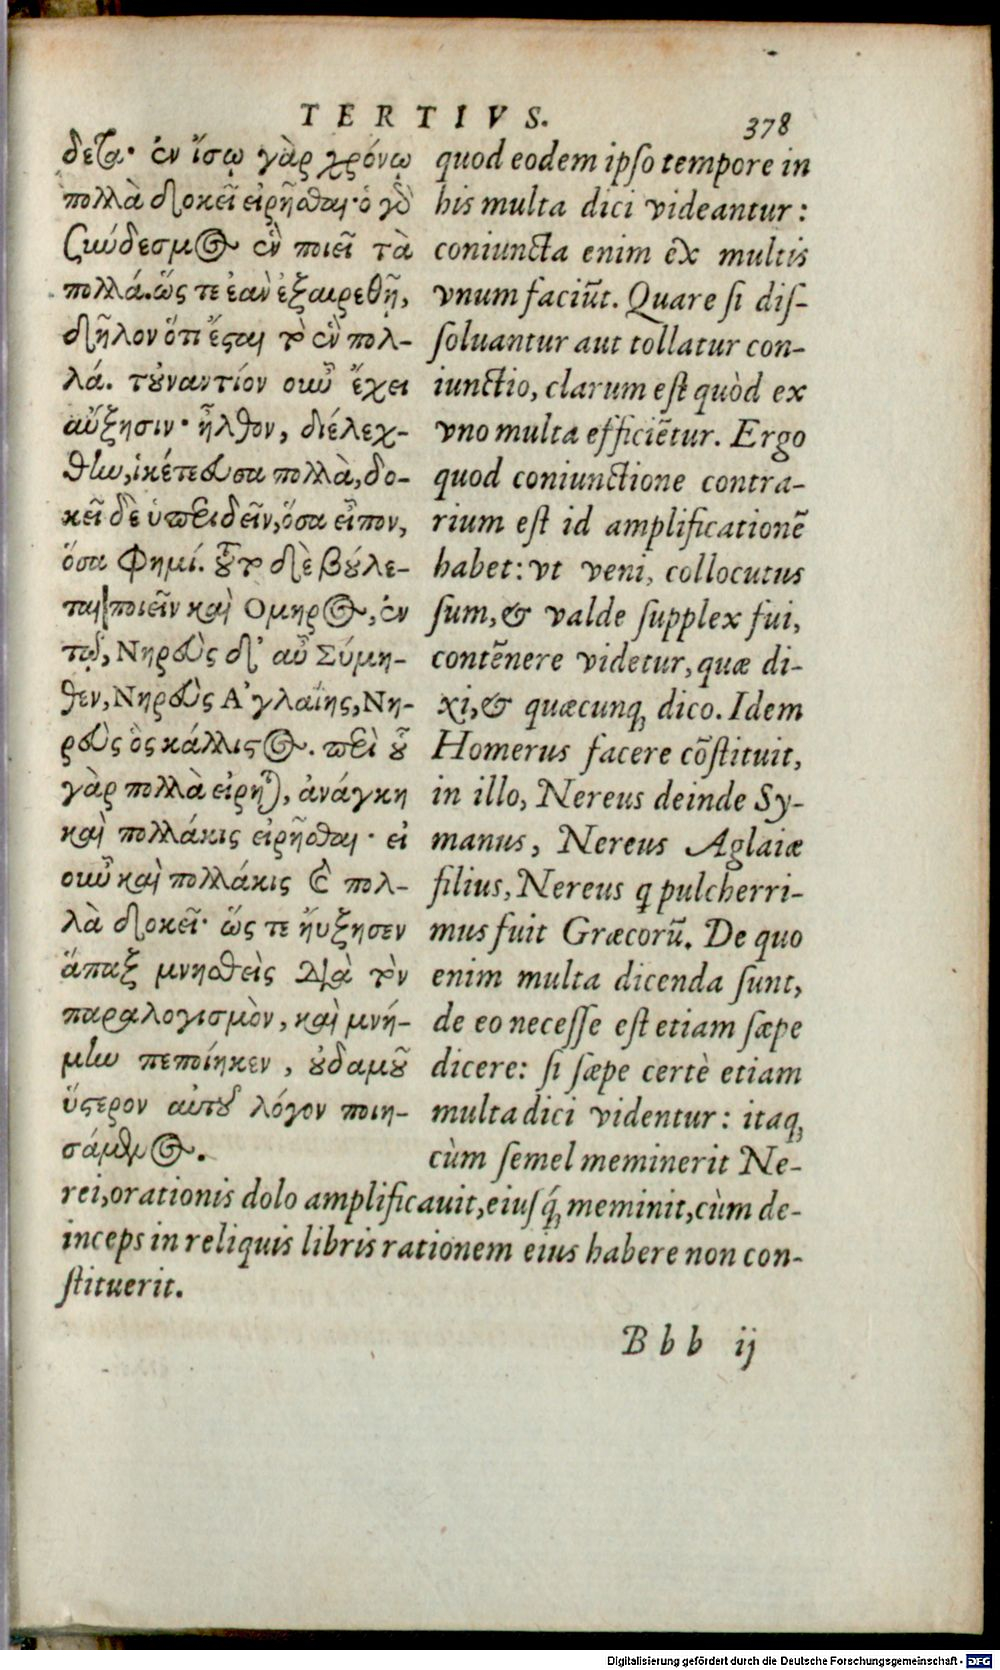 TERTIVS.
378
δετα· ἐν ἴσῳ γὰρ χρόνῳ
πολλὰ δοκεῖ εἰρῆσθαι· ὁ γὰρ
σύνδεσμος ἓν ποιεῖ τὰ
πολλά. ὥς τε ἐὰν ἐξαιρεθῇ,
δῆλον ὅτι ἔσται τὸ ἓν πολ-
λά. τοὐναντίον οὖν ἔχει
αὔξησιν· ἦλθον, διέλεχ-
θην, ἱκέτευσα πολλὰ, δο-
κεῖ δὲ ὑπεριδεῖν, ὅσα εἶπον,
ὅσα φημί. τοῦτο δὲ βούλε-
ται ποιεῖν καὶ Ομηρος, ἐν
τῷ, Νηρεὺς δ' αὖ Σύμη-
θεν, Νηρεὺς Ἀγλαΐης, Νη-
ρεὺς ὃς κάλλιστος. περὶ οὗ
γὰρ πολλὰ εἰρῆται, ἀνάγκη
καὶ πολλάκις εἰρῆσθαι· εἰ
οὖν καὶ πολλάκις καὶ πολ-
λὰ δοκεῖ· ὥς τε ηὔξησεν
ἅπαξ μνησθεὶς διὰ τὸν
παραλογισμὸν, καὶ μνή-
μην πεποίηκεν, οὐδαμοῦ
ὕστερον αὐτοῦ λόγον ποιη-
σάμενος.
quod eodem ipso tempore in
his multa dici videantur:
coniuncta enim ēx multis
vnum faciūt. Quare si dis-
soluantur aut tollatur con-
iunctio, clarum est quòd ex
vno multa efficiētur. Ergo
quod coniunctione contra-
rium est id amplificationē
habet: vt veni, collocutus
sum, & valde supplex fui,
contēnere videtur, quæ di-
xi, & quæcunq; dico. Idem
Homerus facere cōstituit,
in illo, Nereus deinde Sy-
manus, Nereus Aglaiæ
filius, Nereus q pulcherri-
mus fuit Græcorū. De quo
enim multa dicenda sunt,
de eo necesse est etiam sæpe
dicere: si sæpe certè etiam
multa dici videntur: itaq;
cùm semel meminerit Ne-
rei, orationis dolo amplificauit, eiusq́; meminit, cùm de-
inceps in reliquis libris rationem eius habere non con-
stituerit.
Bbb ij
Digitalisierung gefördert durch die Deutsche Forschungsgemeinschaft - DFG